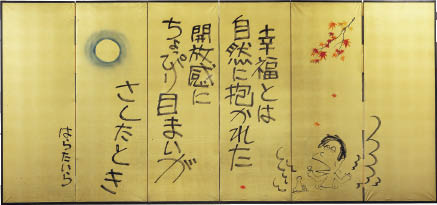 幸福とは
自然に抱かれた
開放感に
ちょっぴり目まいが
さしたとき
はらたいら